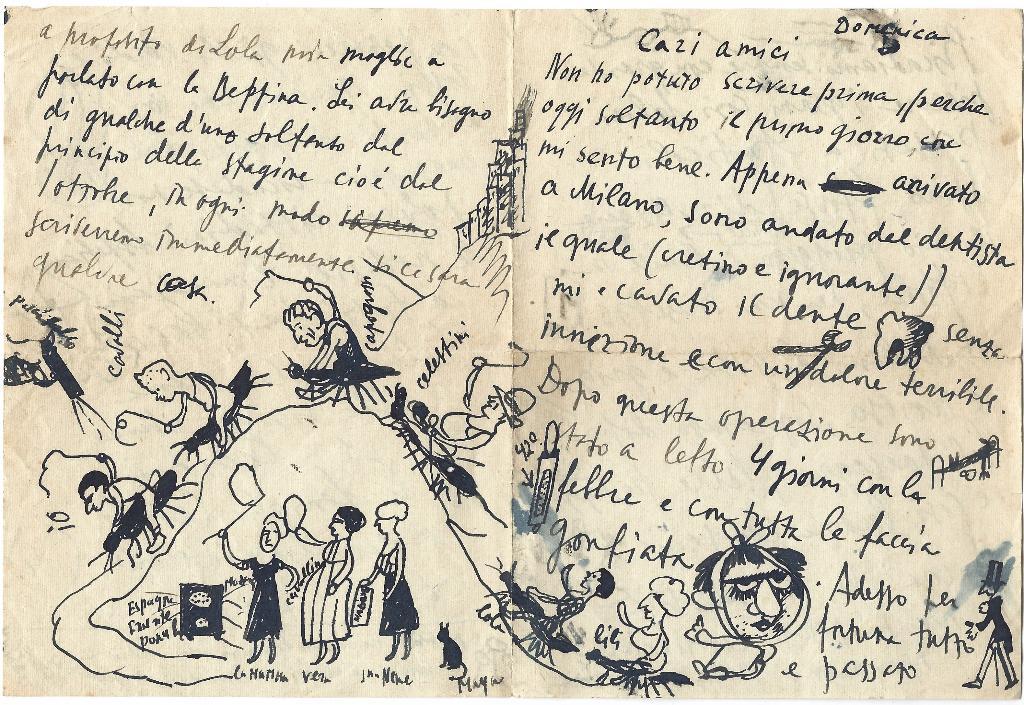 Domenica
Cari amici
Non ho potuto scrivere prima, perche
oggi soltanto il primo giorno, che
mi sento bene. Appena arivato
a Milano, sono andato dal dentista
il quale (cretino e ignorante!)
mi e cavato il dente senza
iniezione e con un dolore terribile.
Dopo questa operazione sono
stato a letto 4 giorni con la
febbre e con tutta la faccia
gonfiata. Adesso per
fortuna tutto
e passato
420
lili
Lola
a proposito di Lola mia moglie a
parlato con la Beppina. Lei avra bisogno
di qualche d'uno soltanto dal
principio della stagione cioé dal
1 ottobre, in ogni modo
scriveremo immediatamente si ce sara
qualche cosa.
cavalli
capogrossi
celestini
io
Espagne
la mamma vera